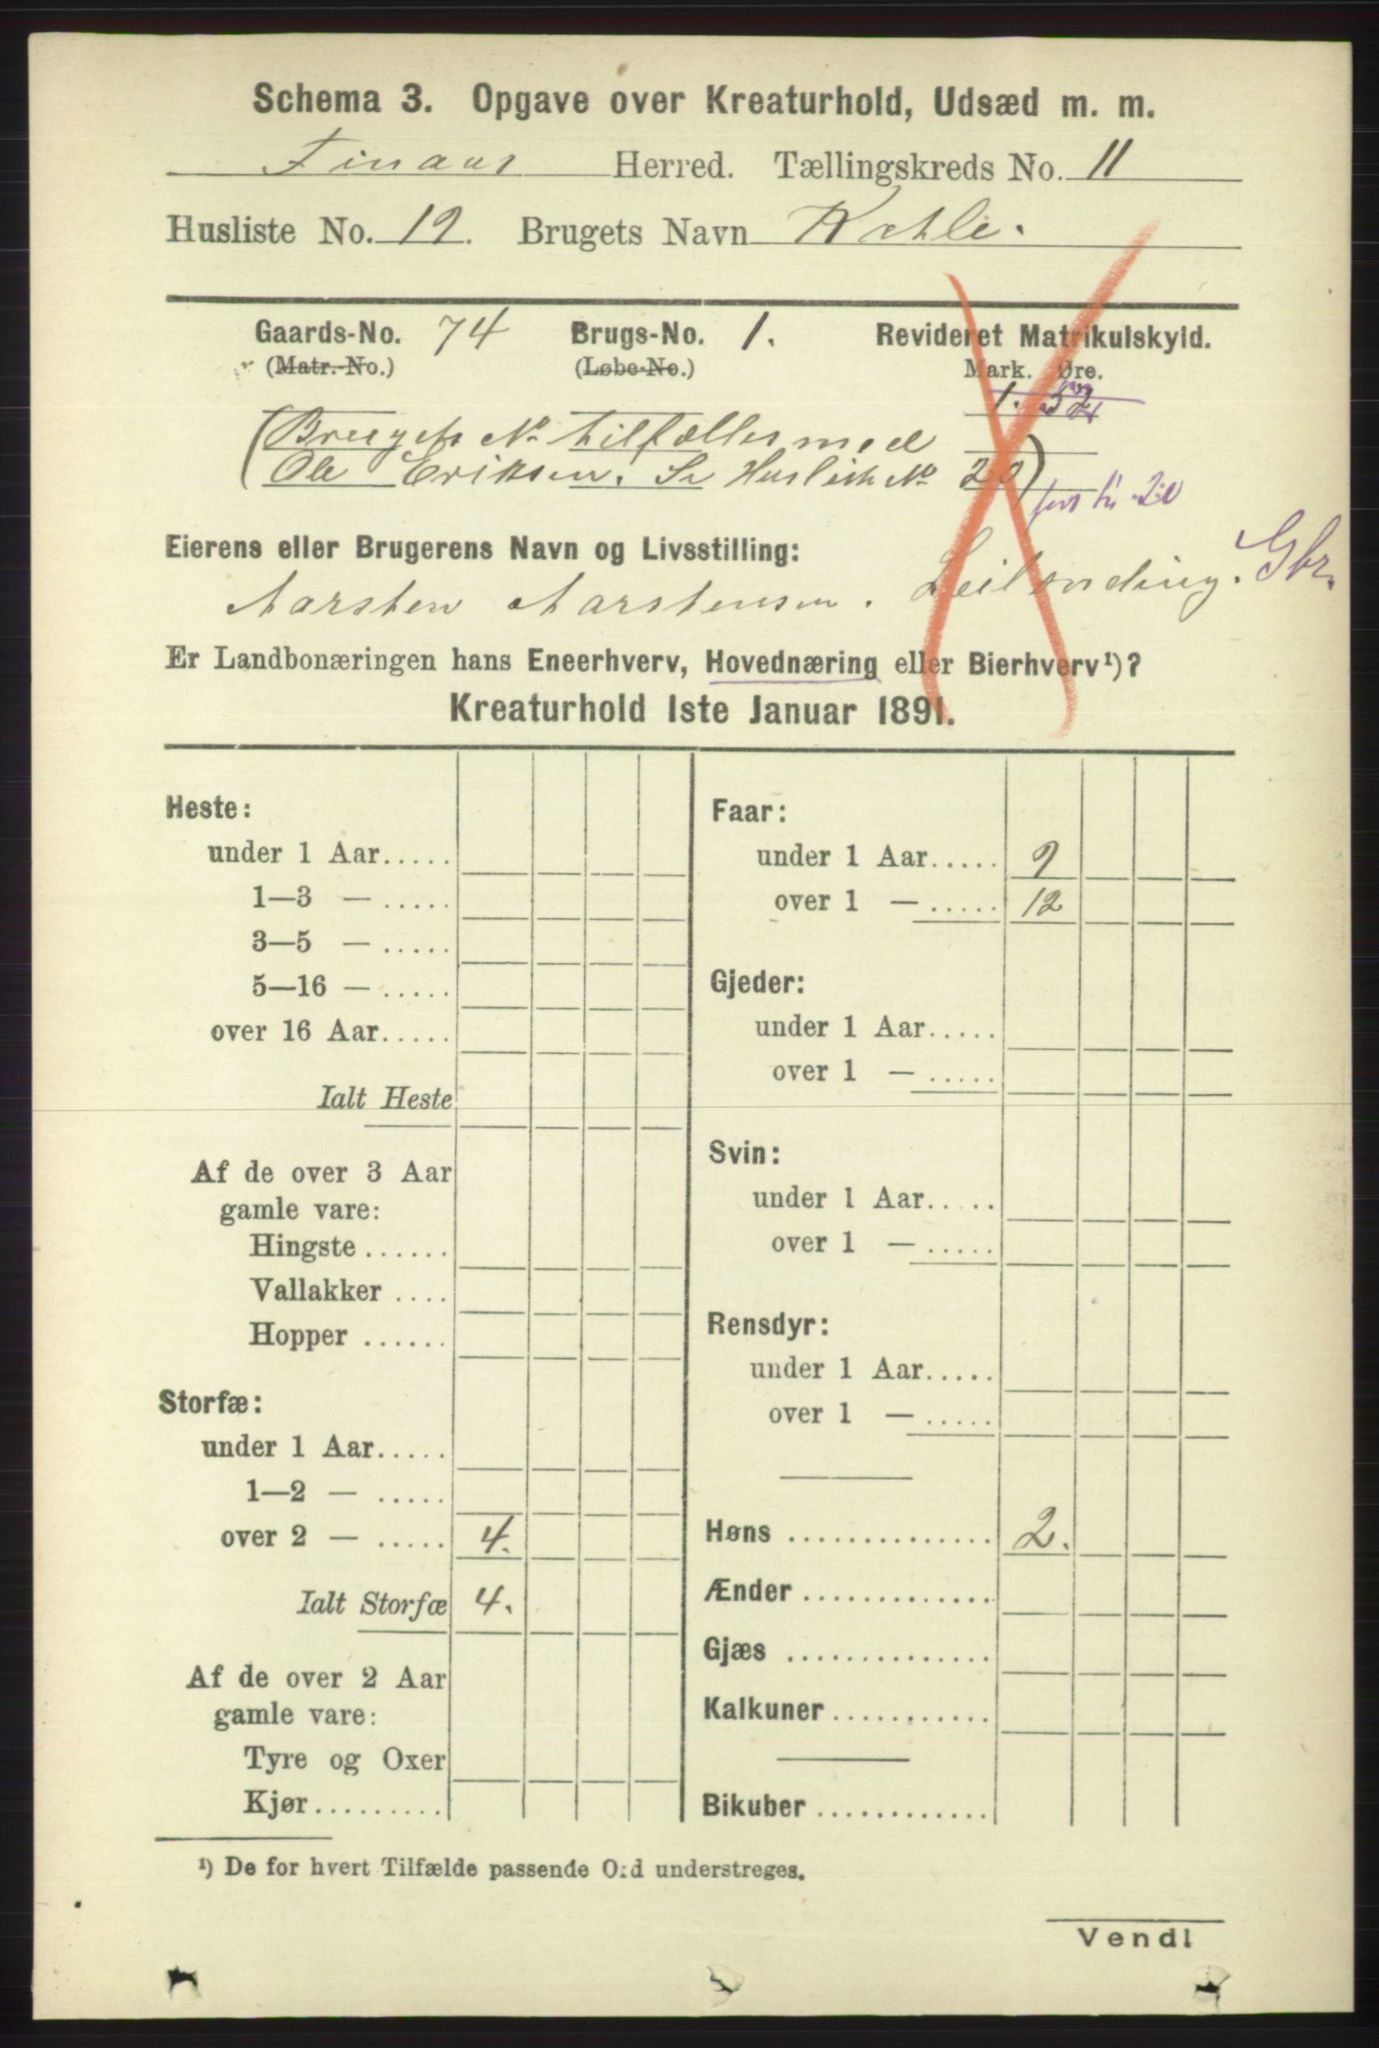 Schema 3. Opgave over Kreaturhold, Udsæd m. m.
Finaas Herred. Tællingskreds No. 11
Husliste No. 19. Brugets Navn Kahle.
Gaards-No. 74 Brugs-No. 1. Revideret Matrikulskyld.
(Matr.-No.) (Løbe-No.) Mark. Øre.
1. 52
(Brugets No tilfælles med
Ole Eriksen. Se Husliste No 20)
20
Eierens eller Brugerens Navn og Livsstilling:
Aarsten Aarstensen. Leilending. Gbr.
Er Landbonæringen hans Eneerhverv, Hovednæring eller Bierhverv¹)?
Kreaturhold 1ste Januar 1891.
Heste:
under 1 Aar.....
1—3 — .....
3—5 — .....
5—16 — .....
over 16 Aar.....
Ialt Heste
Af de over 3 Aar
gamle vare:
Hingste ......
Vallakker ....
Hopper ......
Storfæ:
under 1 Aar.....
1—2 — .....
over 2 — ..... 4.
Ialt Storfæ 4.
Af de over 2 Aar
gamle vare:
Tyre og Oxer
Kjør.........
Faar:
under 1 Aar..... 9
over 1 — ..... 12
Gjeder:
under 1 Aar.....
over 1 — .....
Svin:
under 1 Aar.....
over 1 — .....
Rensdyr:
under 1 Aar.....
over 1 — .....
Høns .............. 2.
Ænder .............
Gjæs ..............
Kalkuner ...........
Bikuber ............
¹) De for hvert Tilfælde passende Ord understreges.
Vend!